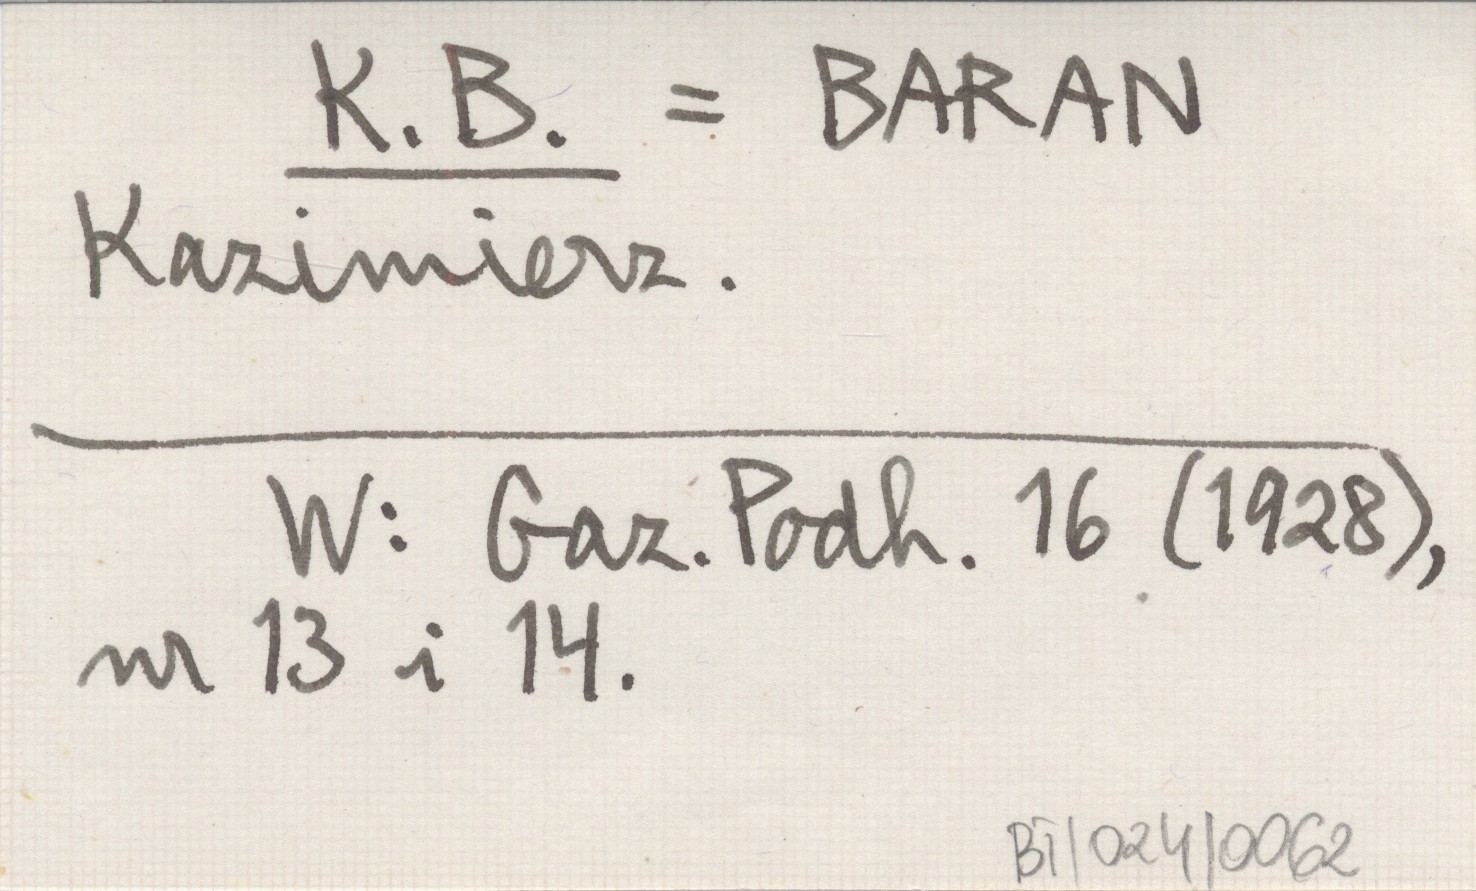 K. B. = BARAN
Kazimierz.
W: Gaz. Podh. 16 (1928),
nr 13 i 14.
BT/024/0062